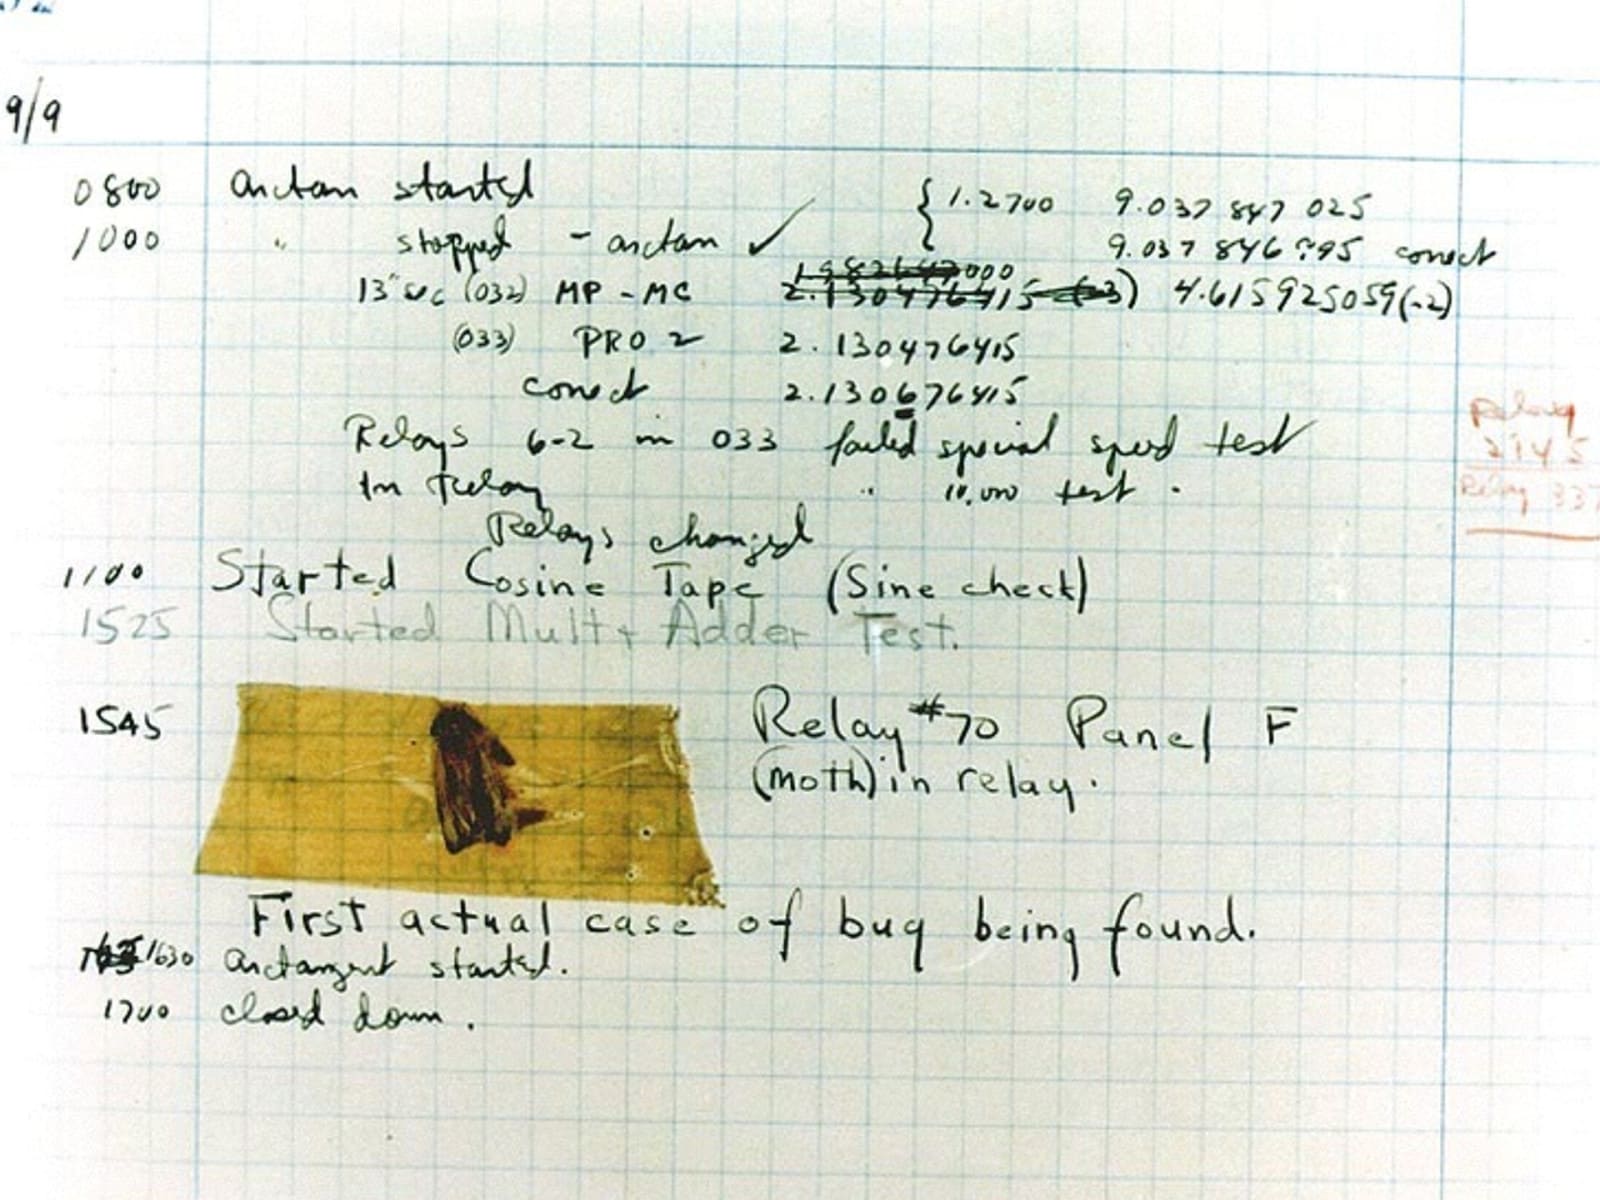 9/9
0800 Arctan started { 1.2700 9.037 847 025
1000 " stopped - arctan ✓ 9.037 846 95 correct
000
13" sec (032) MP - MC 2.130476415 (-3) 4.615925059(-2)
(033) PRO 2 2.130476415
correct 2.130676415
Relays 6-2 in 033 failed special speed test
In Relay " 10.000 test .
Relays changed
Relay
2145
Relay 337
1100 Started Cosine Tape (Sine check)
1525 Started Mult + Adder Test.
1545 Relay #70 Panel F
(moth) in relay.
First actual case of bug being found.
1630 Arctangent started.
1700 closed down.